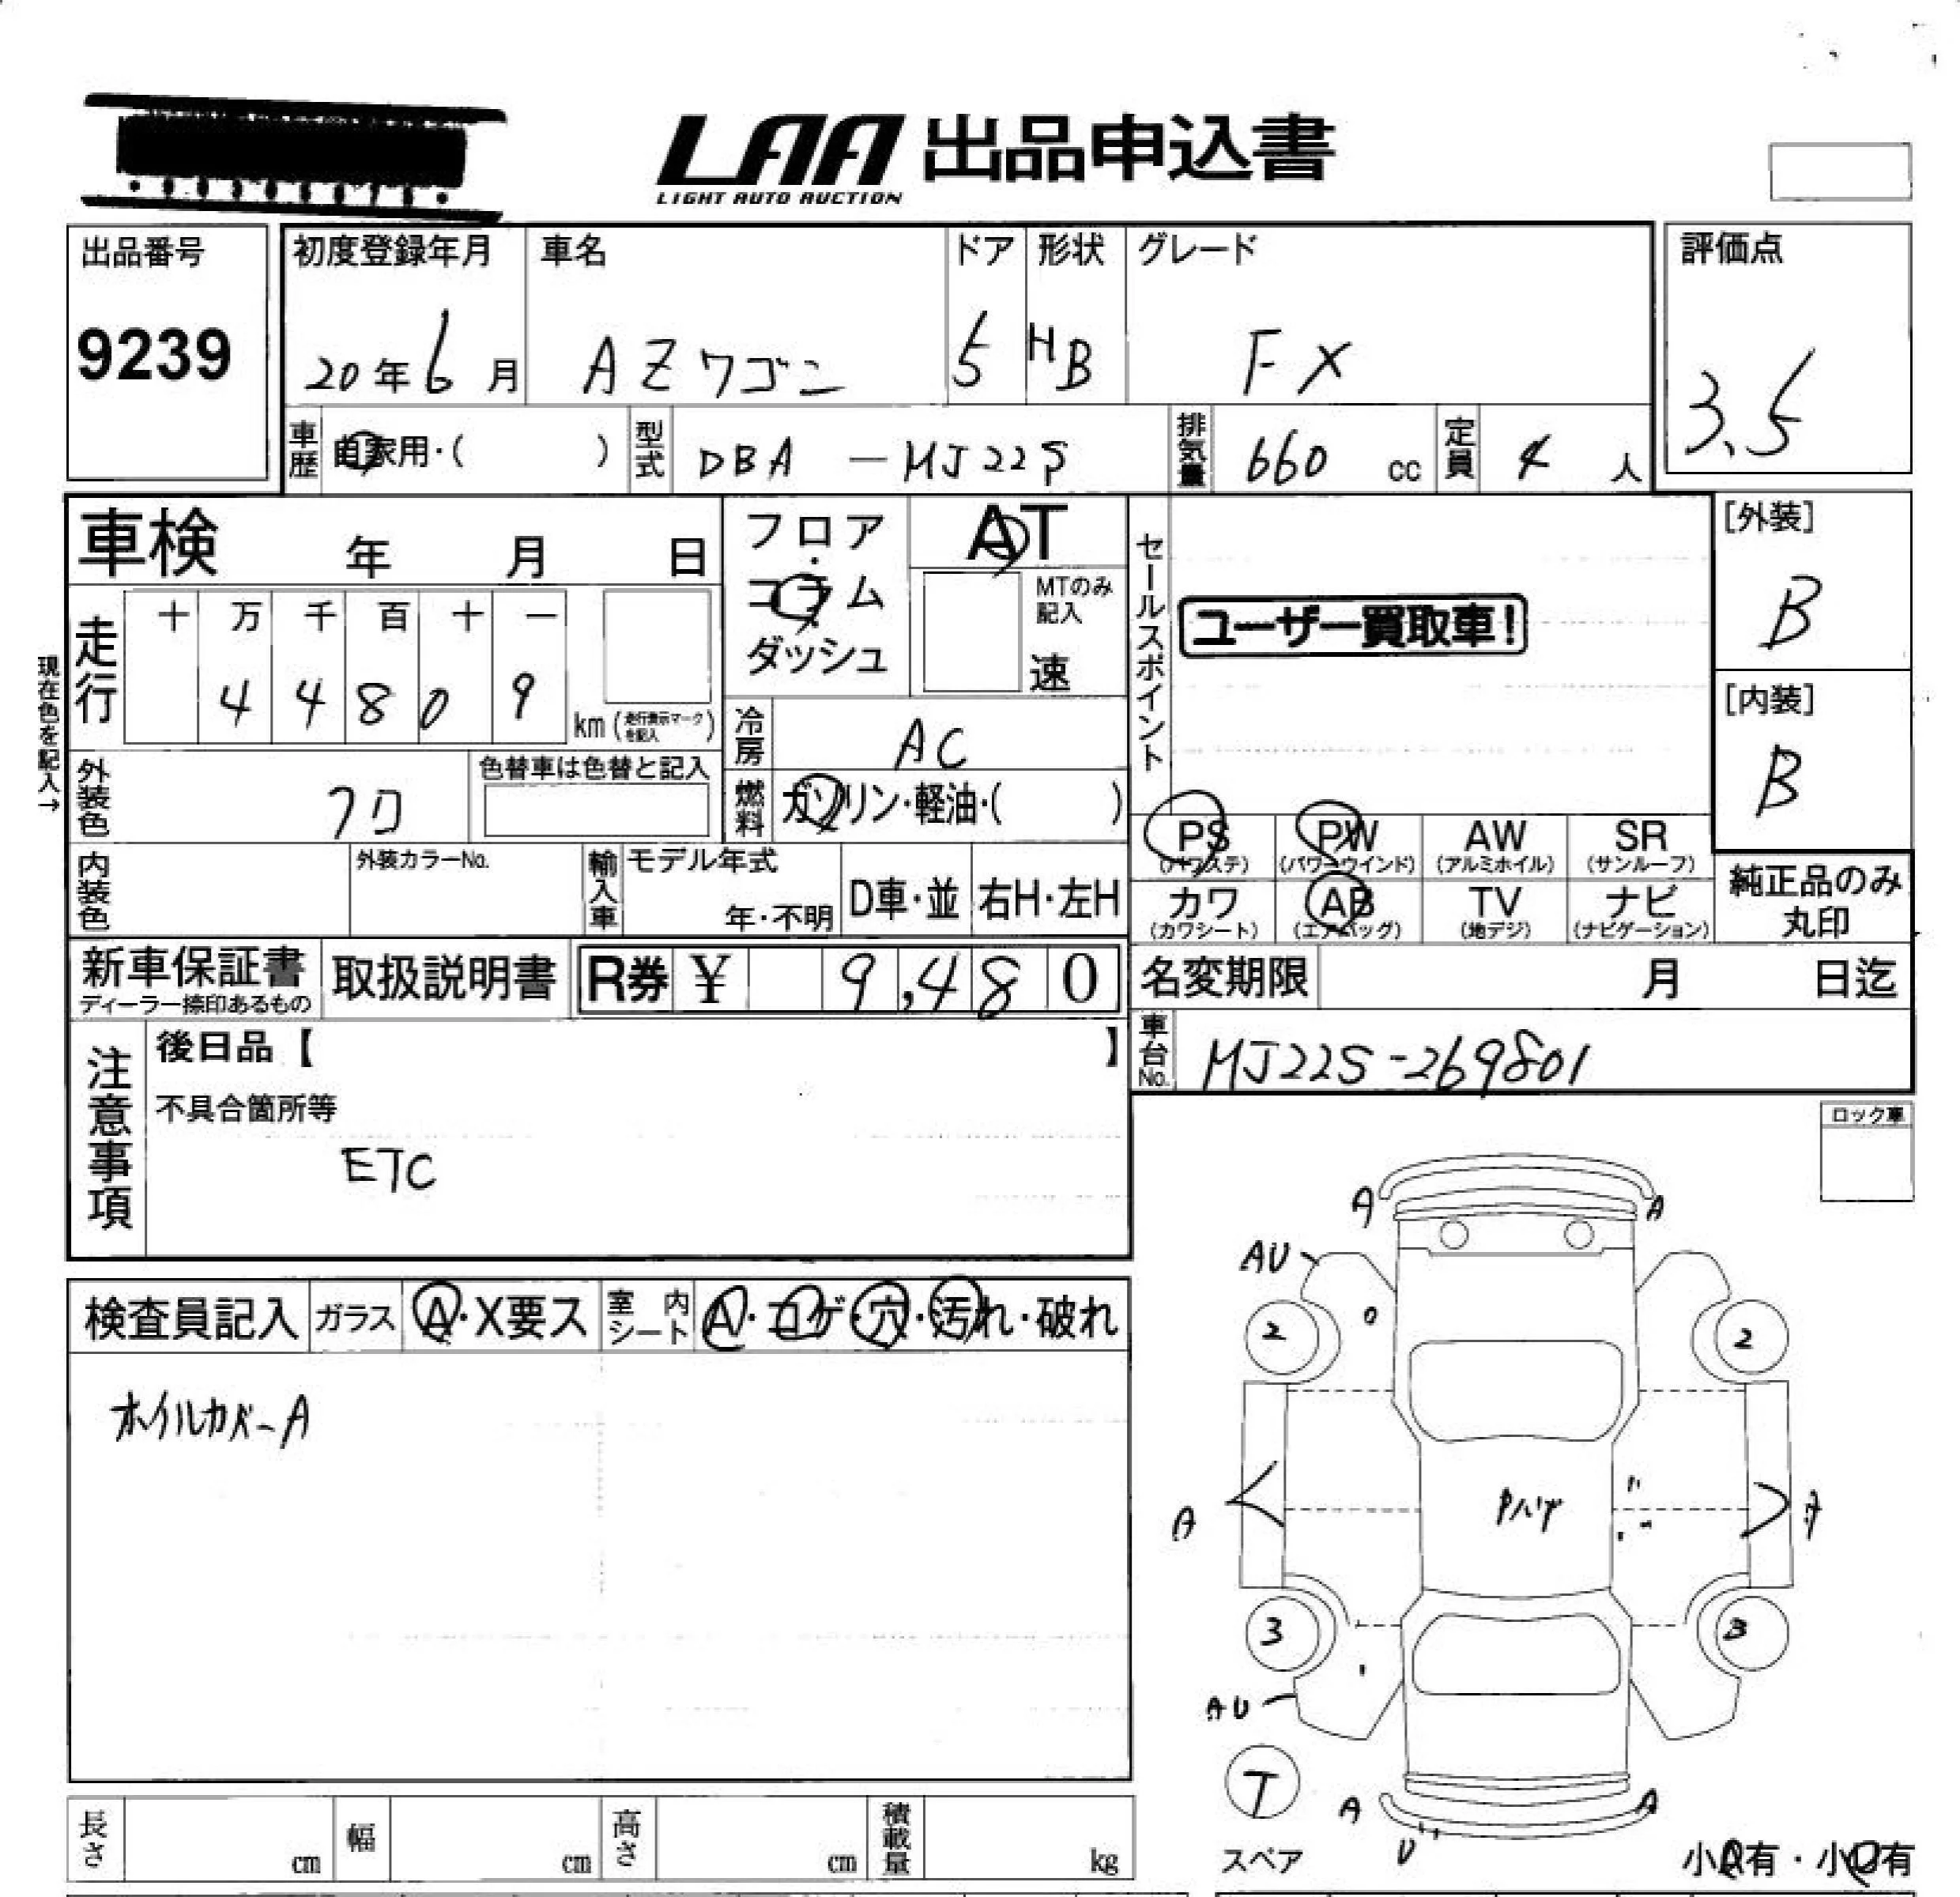 LAA 出品申込書
LIGHT AUTO AUCTION
出品番号
9239
初度登録年月
20年6月
車名
AZワゴン
ドア
5
形状
HB
グレード
FX
評価点
3.5
車歴
自家用・( )
型式
DBA-MJ22S
排気量
660 cc
定員
4 人
車検 年 月 日
フロア・
コラム
ダッシュ
AT
MTのみ
記入
速
セールスポイント
ユーザー買取車!
[外装]
B
[内装]
B
現在色を記入→
走行
十 万 千 百 十 一
4 4 8 0 9
km (走行表示マークを記入)
冷房
AC
外装色
クロ
色替車は色替と記入
燃料
ガソリン・軽油・( )
PS
(パワステ)
PW
(パワーウインド)
AW
(アルミホイル)
SR
(サンルーフ)
内装色
外装カラーNo.
輸入車
モデル年式
年・不明
D車・並
右H・左H
カワ
(カワシート)
AB
(エアバッグ)
TV
(地デジ)
ナビ
(ナビゲーション)
純正品のみ
丸印
新車保証書
ディーラー捺印あるもの
取扱説明書
R券 ¥ 9,480
名変期限 月 日迄
注意事項
後日品【 】
不具合箇所等
ETC
車台No.
MJ22S-269801
ロック車
検査員記入
ガラス
A・X要ス
室内シート
A・コゲ・穴・汚れ・破れ
ホイルカバーA
A
A
AU
2
2
A
A
3
3
AU
T
スペア
A
A
U
小A有・小U有
長さ cm
幅 cm
高さ cm
積載量 kg